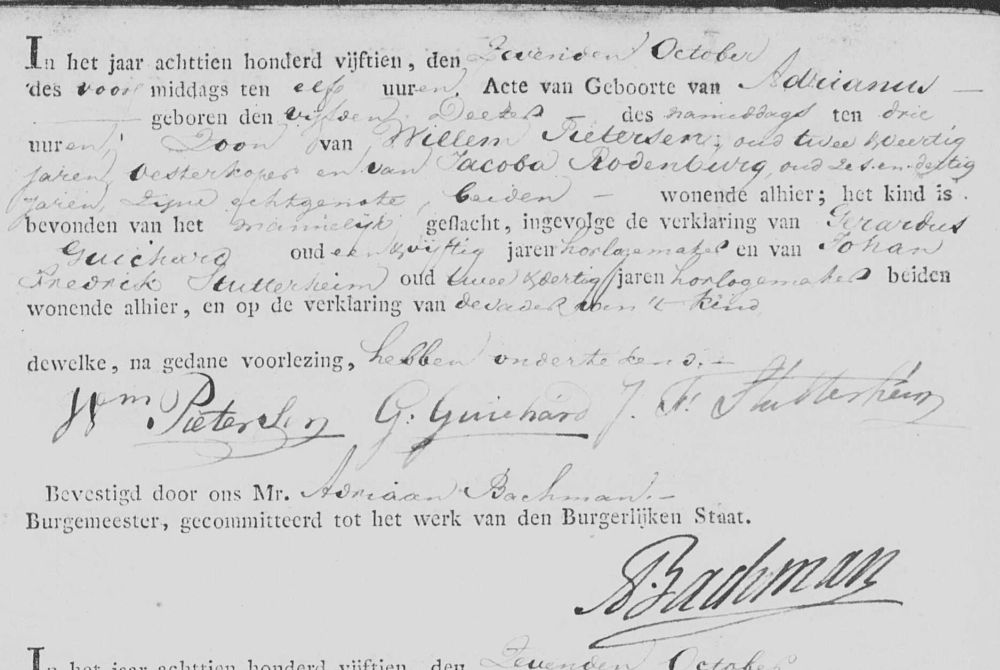 In het jaar achttien honderd vijftien, den Zevenden October
des voor middags ten elf uuren. Acte van Geboorte van Adrianus —
— geboren den vijfden Dezer des nameddags ten drie
uuren, Zoon van Willem Pietersen, oud twee & veertig
jaren, oesterkoper en van Jacoba Rodenburg, oud en dertig
jaren, Zijne echtgenote, beiden — wonende alhier; het kind is
bevonden van het mannelijk geslacht, ingevolge de verklaring van Gerardus
Guichard oud een & vijftig jaren horlogemaker en van Johan
Fredrick Stutterheim oud twee & veertig jaren horlogemaker beiden
wonende alhier, en op de verklaring van de vader van 't kind
dewelke, na gedane voorlezing, hebben ondertekend. —
Wm Pietersen G: Guichard J. Fr. Stutterheim
Bevestigd door ons Mr. Adriaan Bachman. —
Burgemeester, gecommitteerd tot het werk van den Burgerlijken Staat.
A Bachman
In het jaar achttien honderd vijftien, den Zevenden October